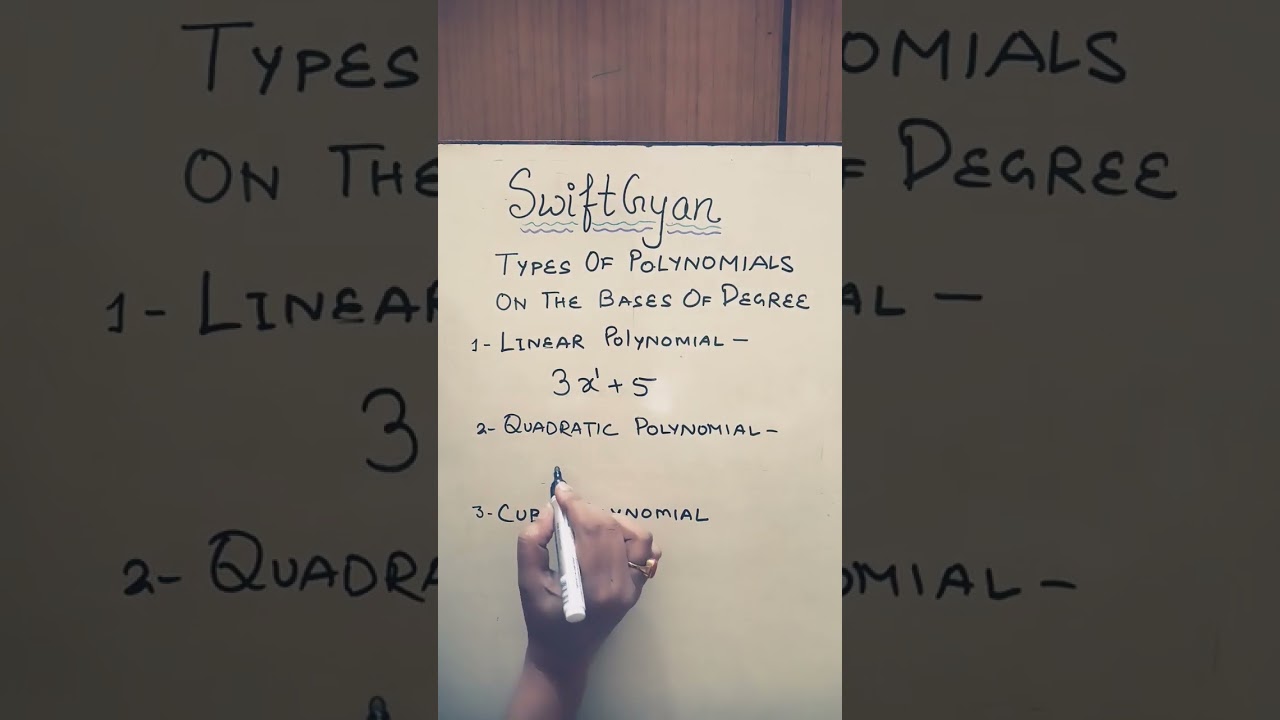 SwiftGyan
TYPES OF POLYNOMIALS
ON THE BASES OF DEGREE
1- LINEAR POLYNOMIAL –
3x¹ + 5
2- QUADRATIC POLYNOMIAL –
3- CUB YNOMIAL